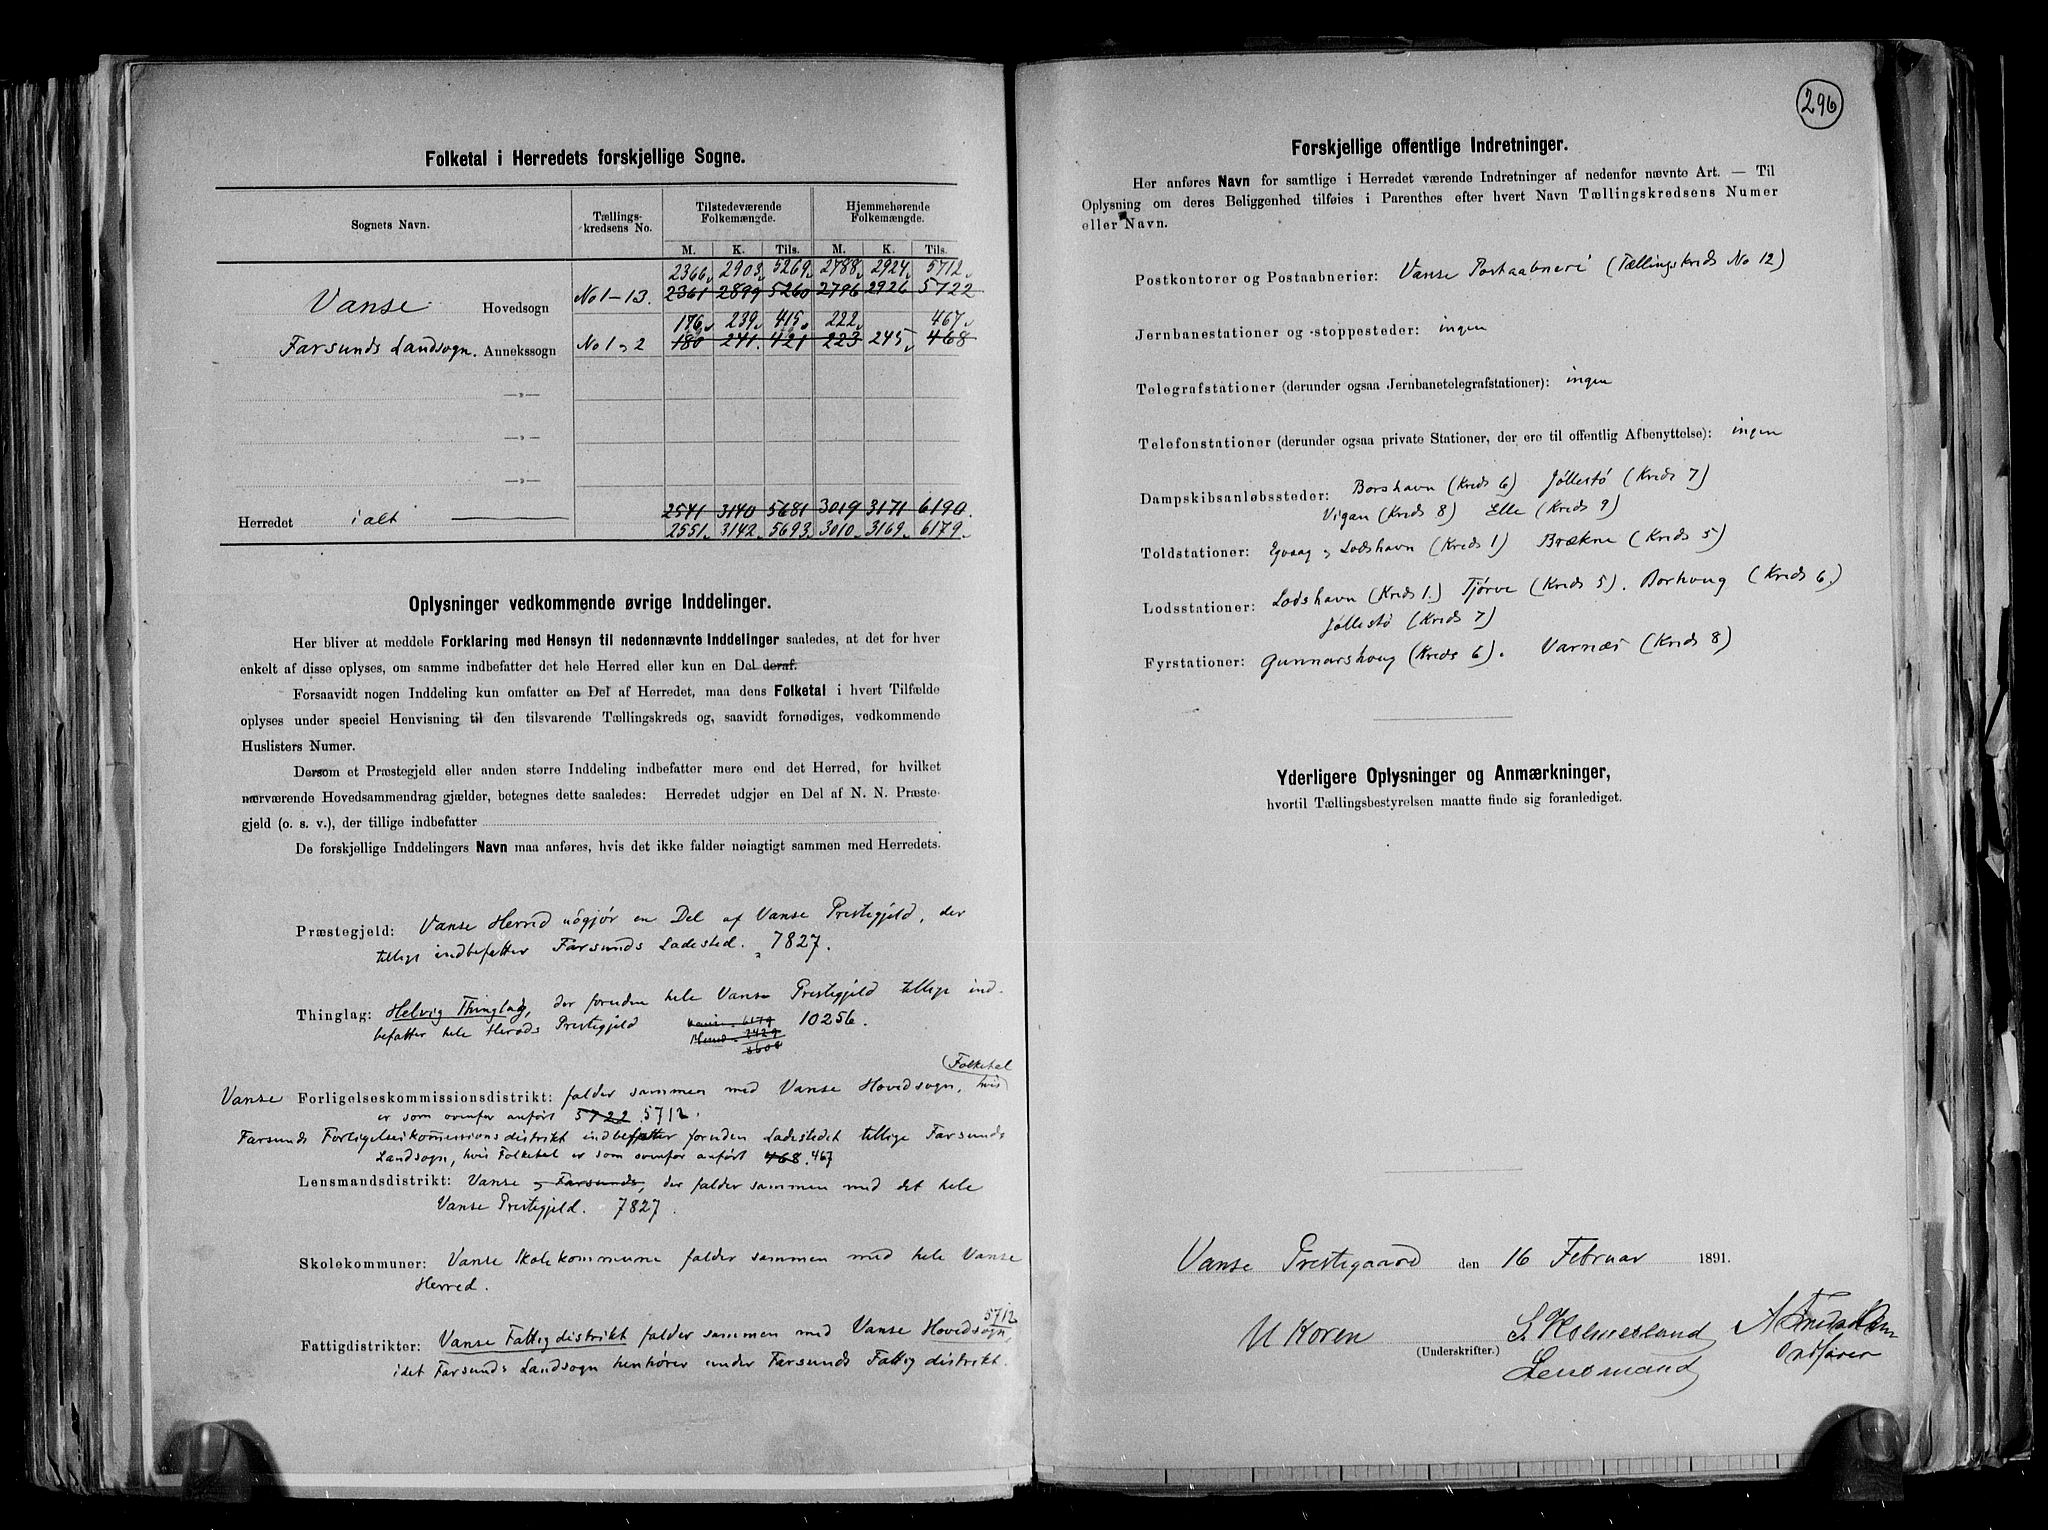 Folketal i Herredets forskjellige Sogne.
Sognets Navn. Tællings-kredsens No. Tilstedeværende Folkemængde. Hjemmehørende Folkemængde.
M. K. Tils. M. K. Tils.
2366 2903 5269 2788 2924 5712
Vanse Hovedsogn No 1-13. 2361 2899 5260 2796 2926 5722
176 239 415 222 467
Farsunds Landsogn. Annekssogn No 1 2 180 241 421 223 245 468
—»—
—»—
—»—
2541 3140 5681 3019 3171 6190
Herredet ialt 2551 3142 5693 3010 3169 6179
Oplysninger vedkommende øvrige Inddelinger.
Her bliver at meddele Forklaring med Hensyn til nedennævnte Inddelinger saaledes, at det for hver
enkelt af disse oplyses, om samme indbefatter det hele Herred eller kun en Del deraf.
Forsaavidt nogen Inddeling kun omfatter en Del af Herredet, maa dens Folketal i hvert Tilfælde
oplyses under speciel Henvisning til den tilsvarende Tællingskreds og, saavidt fornødiges, vedkommende
Huslisters Numer.
Dersom et Præstegjeld eller anden større Inddeling indbefatter mere end det Herred, for hvilket
nærværende Hovedsammendrag gjælder, betegnes dette saaledes: Herredet udgjør en Del af N. N. Præste-
gjeld (o. s. v.), der tillige indbefatter
De forskjellige Inddelingers Navn maa anføres, hvis det ikke falder nøiagtigt sammen med Herredets.
Præstegjeld: Vanse Herred udgjør en Del af Vanse Prestegjeld, der
tillige indbefatter Farsunds Ladested. 7827.
Thinglag: Helvig Thinglag, der foruden hele Vanse Prestegjeld tillige ind-
befatter hele Herads Prestegjeld 6179 2429 8608 10256.
Vanse Forligelseskommissionsdistrikt: falder sammen med Vanse Hovedsogn, hvis Folketal
er som ovenfor anført 5722 5712.
Farsunds Forligelseskommissionsdistrikt indbefatter foruden Ladestedet tillige Farsunds
Landsogn, hvis Folketal er som ovenfor anført 468. 467
Lensmandsdistrikt: Vanse Farsunds, der falder sammen med det hele
Vanse Prestegjeld. 7827.
Skolekommuner: Vanse Skolekommune falder sammen med hele Vanse
Herred.
5712
Fattigdistrikter: Vanse Fattigdistrikt falder sammen med Vanse Hovedsogn,
idet Farsunds Landsogn henhører under Farsunds Fattigdistrikt.
296
Forskjellige offentlige Indretninger.
Her anføres Navn for samtlige i Herredet værende Indretninger af nedenfor nævnte Art. — Til
Oplysning om deres Beliggenhed tilføies i Parenthes efter hvert Navn Tællingskredsens Numer
eller Navn.
Postkontorer og Postaabnerier: Vanse Postaabneri (Tællingskreds No 12)
Jernbanestationer og -stoppesteder: ingen
Telegrafstationer (derunder ogsaa Jernbanetelegrafstationer): ingen
Telefonstationer (derunder ogsaa private Stationer, der ere til offentlig Afbenyttelse): ingen
Dampskibsanløbssteder: Borshavn (Kreds 6) Jøllestø (Kreds 7)
Vigan (Kreds 8) Elle (Kreds 9)
Toldstationer: Egvaag Lodshavn (Kreds 1) Brækne (Kreds 5)
Lodsstationer: Lodshavn (Kreds 1.) Tjørve (Kreds 5). Borhoug (Kreds 6.)
Jøllestø (Kreds 7)
Fyrstationer: Gunnarshoug (Kreds 6). Varnæs (Kreds 8)
Yderligere Oplysninger og Anmærkninger,
hvortil Tællingsbestyrelsen maatte finde sig foranlediget.
Vanse Prestegaard den 16 Februar 1891.
U Koren S. Holmesland
(Underskrifter.)
Lensmand Ordfører